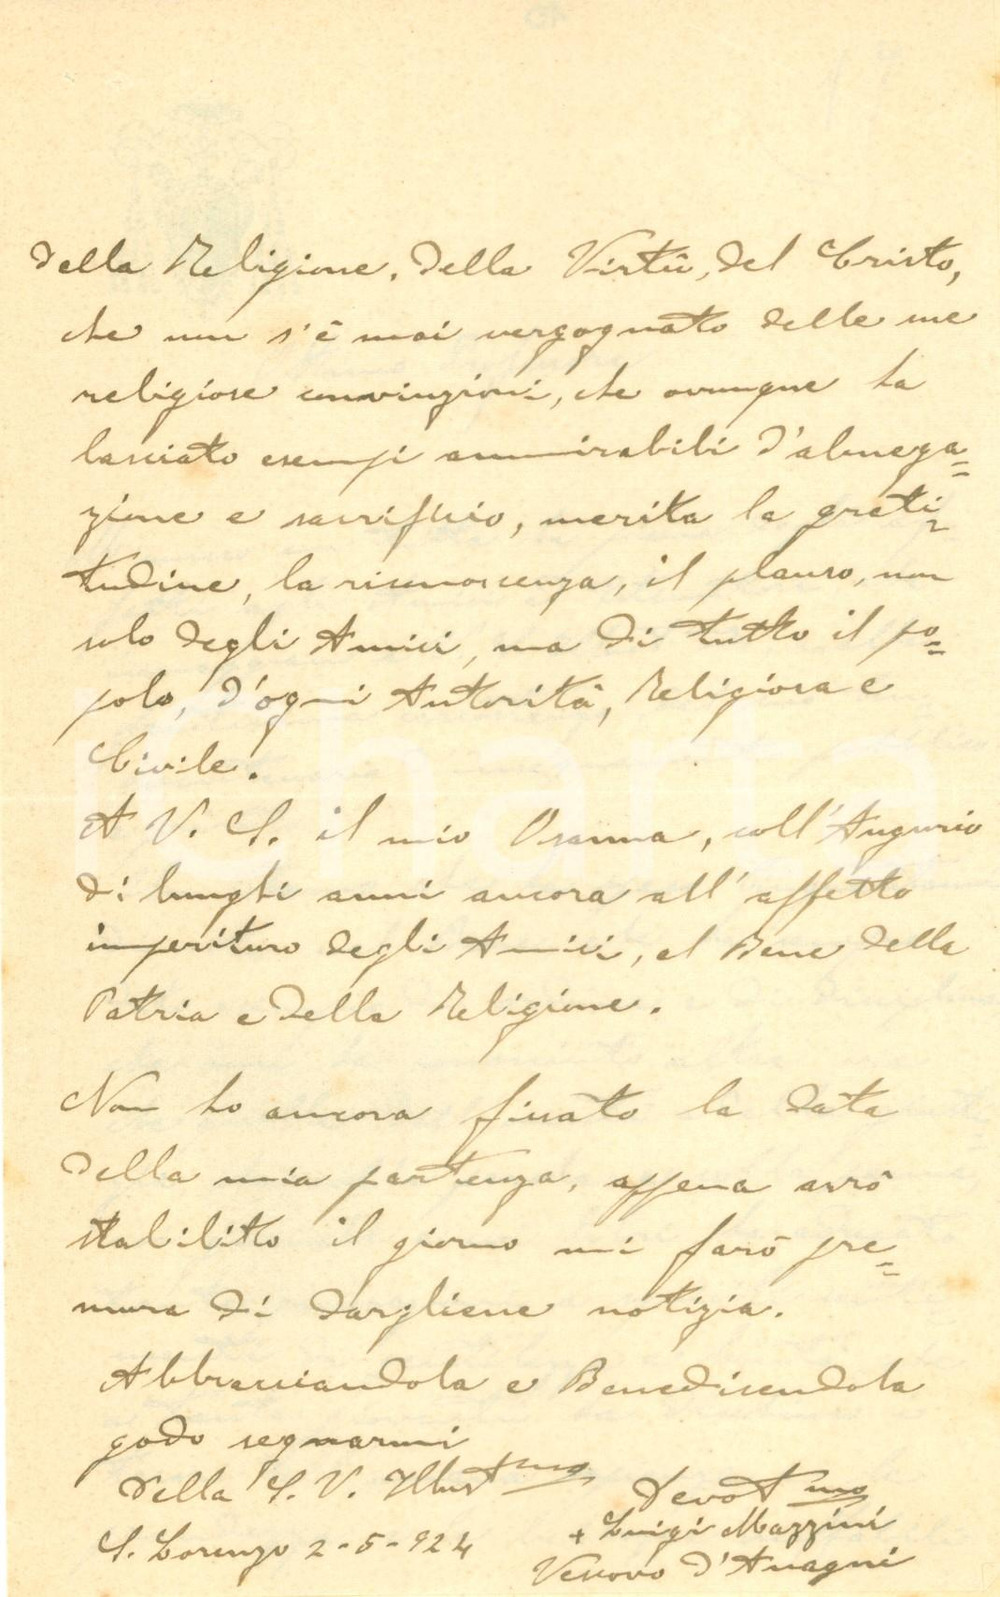 della Religione, della Virtù, del Cristo,
che non s'è mai vergognato delle sue
religiose convinzioni, che ovunque ha
lasciato esempi ammirabili d'abnega=
zione e sacrificio, merita la grati=
tudine, la riconoscenza, il plauso, non
solo degli Amici, ma di tutto il po=
polo, d'ogni Autorità, Religiosa e
Civile.
A V. S. il mio Osanna, coll'Augurio
di lunghi anni ancora all'affetto
imperituro degli Amici, al Bene della
Patria e della Religione.
Non ho ancora fissato la data
della mia partenza, appena avrò
stabilitto il giorno mi farò pre=
mura di dargliene notizia.
Abbracciandola e Benedicendola
godo segnarmi
della S. V. Illustmo
Devotmo
+ Luigi Mazzini
S. Lorenzo 2-5-924
Vescovo d'Anagni